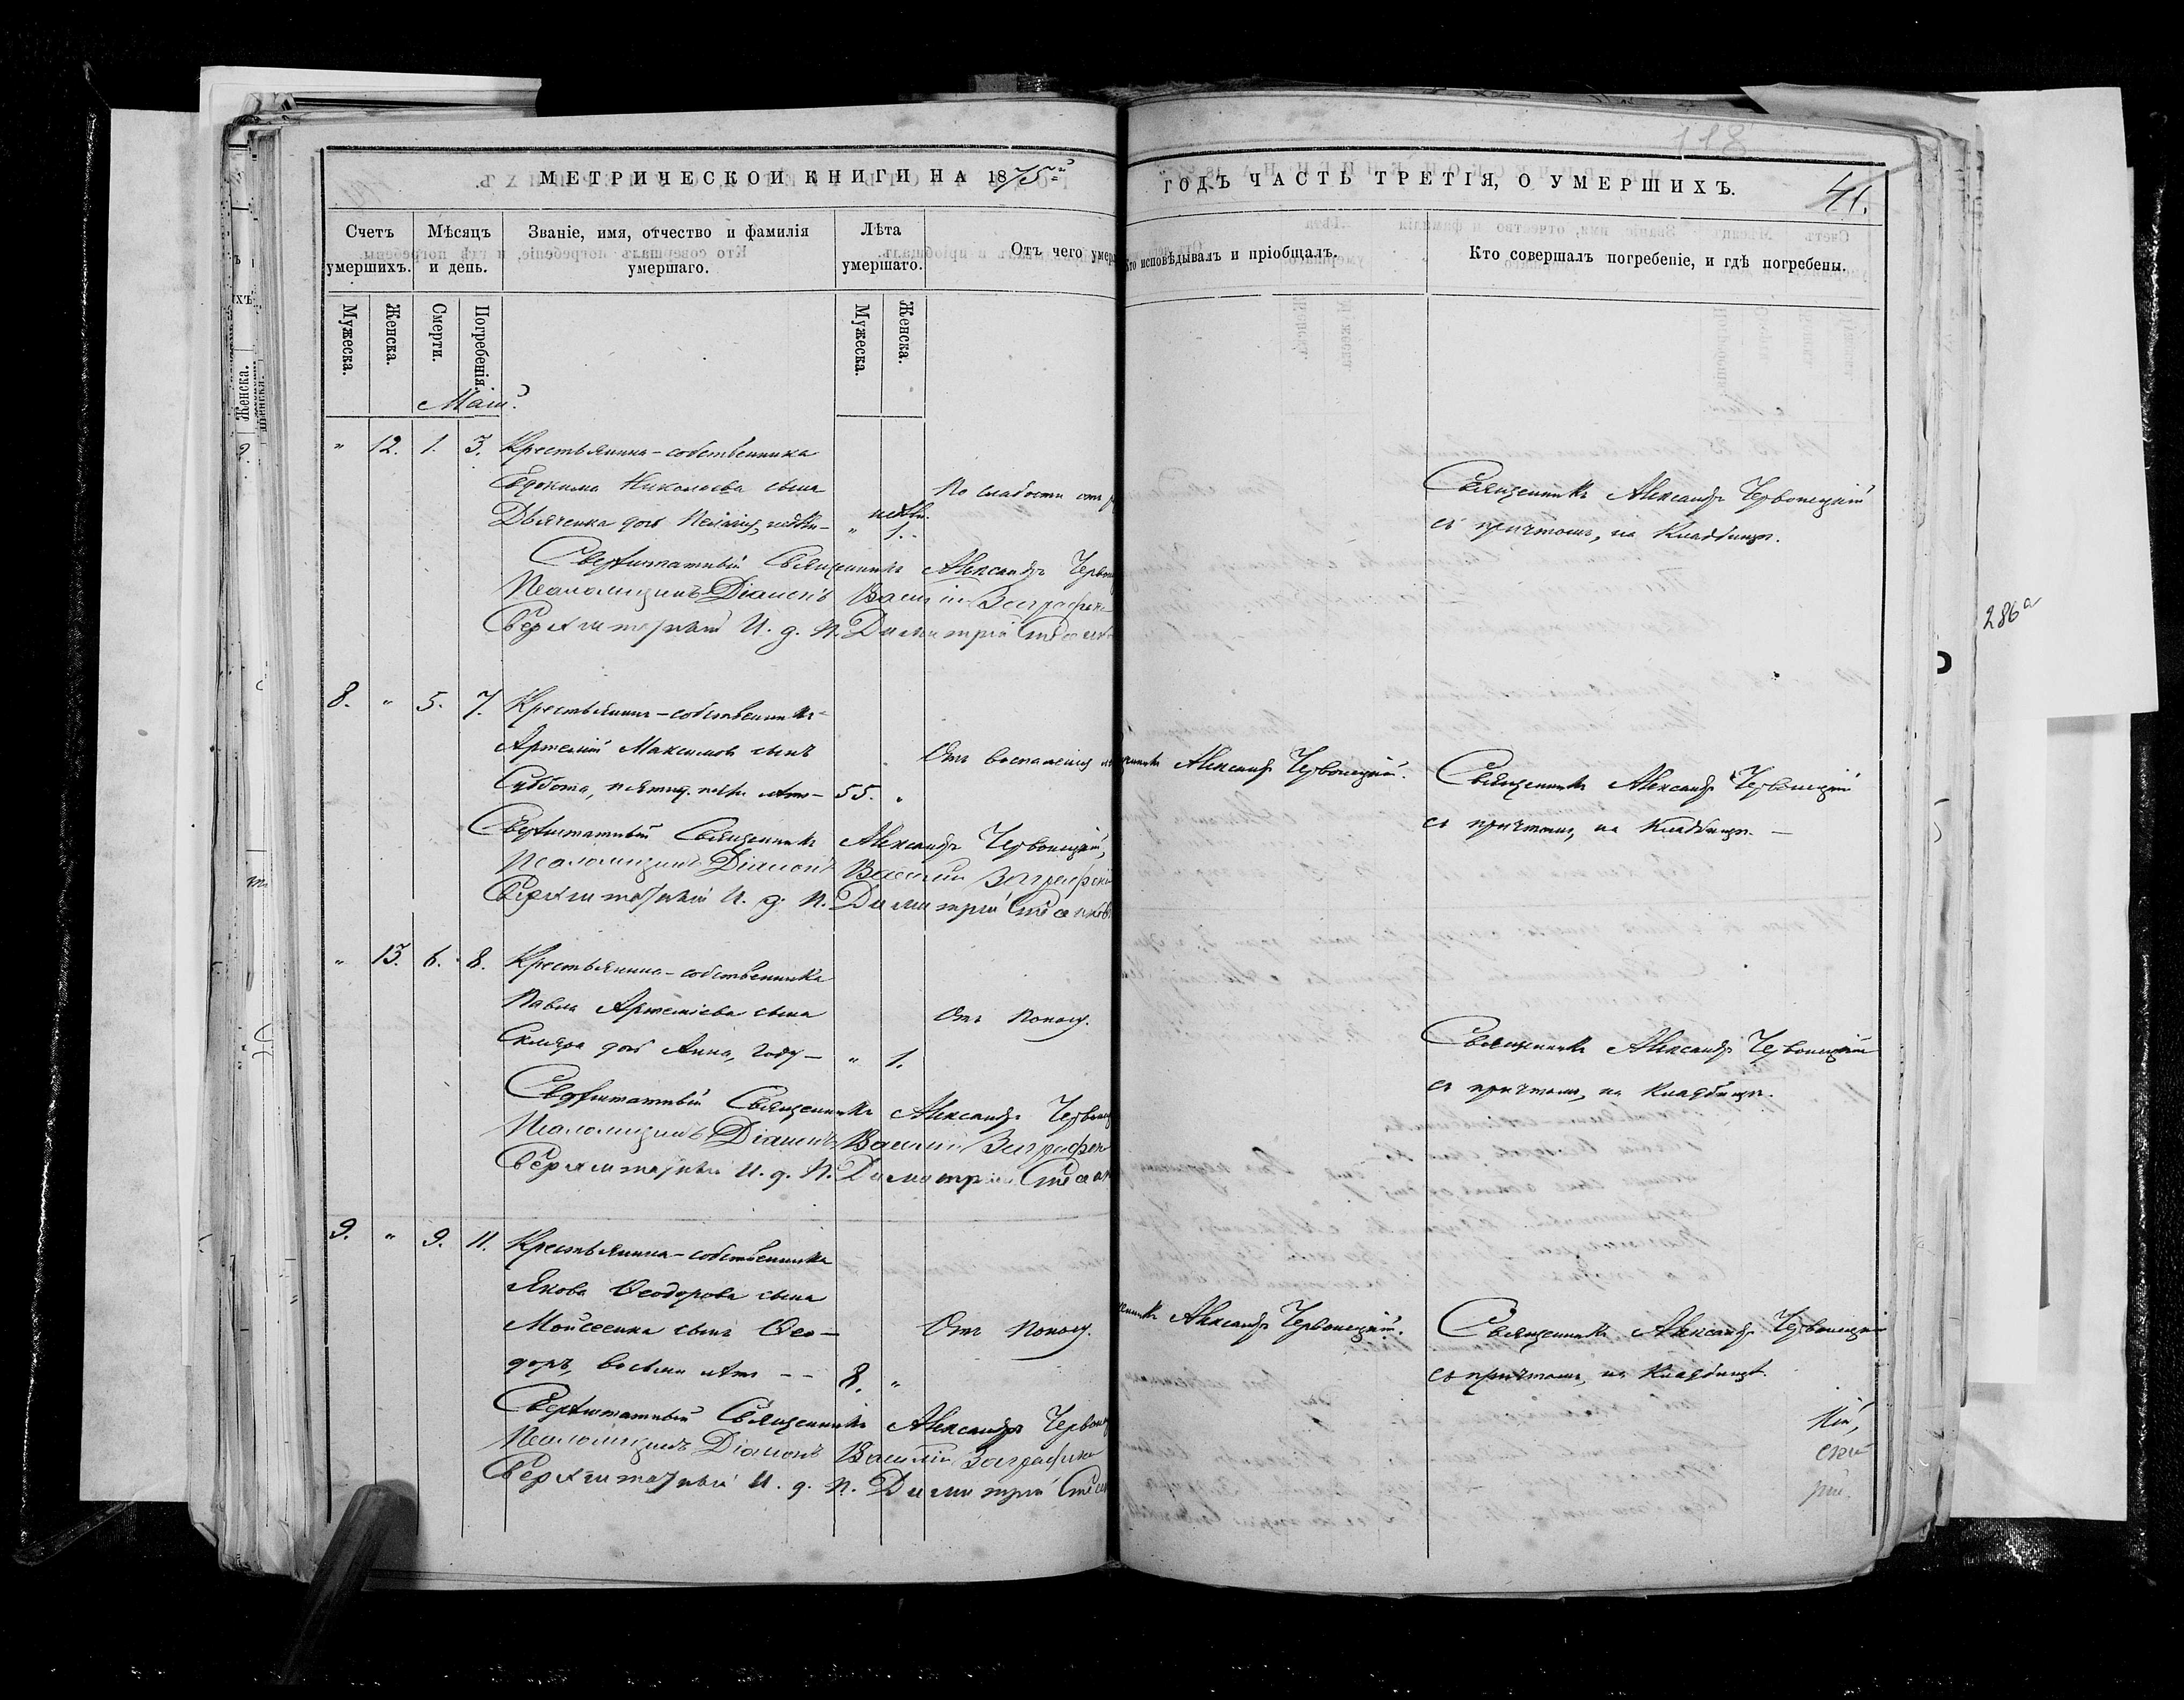 118
МЕТРИЧЕСКОЙ КНИГИ НА 1875й
ГОДЪ ЧАСТЬ ТРЕТІЯ, О УМЕРШИХЪ.
41.
Счетъ умершихъ.
Мѣсяцъ и день.
Званіе, имя, отчество и фамилія умершаго.
Лѣта умершаго.
Отъ чего умер
то исповѣдывалъ и пріобщалъ.
Кто совершалъ погребеніе, и гдѣ погребены.
Мужеска.
Женска.
Смерти.
Погребенія.
Мужеска.
Женска.
Май.
" 12. 1. 3. Крестьянина-собственника
Евдокима Николаева сына
Дьяченка дочь недѣли
недѣли.
" 1.
По слабости отъ
Священникъ Александръ Червонецкій
съ причтомъ, на Кладбищѣ.
Сверхштатный Священникъ Александръ Червонец
Псаломщикъ Діаконъ Василій Заграфск
Сверхштатный И. д. П. Димитрій
8. " 5. 7. Крестьянинъ-собственникъ
Артемій Максимовъ сынъ
Суббота, пятид. пяти лѣтъ
55. "
Отъ воспаленія
Александръ Червонецкій.
Священникъ Александръ Червонецкій
съ причтомъ, на Кладбищѣ.
Сверхштатный Священникъ Александръ Червонецкій,
Псаломщикъ Діаконъ Василій Заграфскій
Сверхштатный И. д. П. Димитрій
" 13. 6. 8. Крестьянина-собственника
Павла Артеміева сына
Скляра дочь Анна, году
" 1.
Отъ поносу.
Священникъ Александръ Червонецкій
съ причтомъ, на Кладбищѣ.
Сверхштатный Священникъ Александръ Червонец
Псаломщикъ Діаконъ Василій Заграфск
Сверхштатный И. д. П. Димитрій
9. " 9. 11. Крестьянина-собственника
Якова Ѳеодорова сына
Мойсеенка сынъ Ѳео-
доръ, восьми лѣтъ - -
8. "
Отъ поносу.
Александръ Червонецкій.
Священникъ Александръ Червонецкій
съ причтомъ, на Кладбищѣ.
Сверхштатный Священникъ Александръ Червонец
кій,
Псаломщикъ Діаконъ Василій Заграфск
скій
Сверхштатный И. д. П. Димитрій
286а